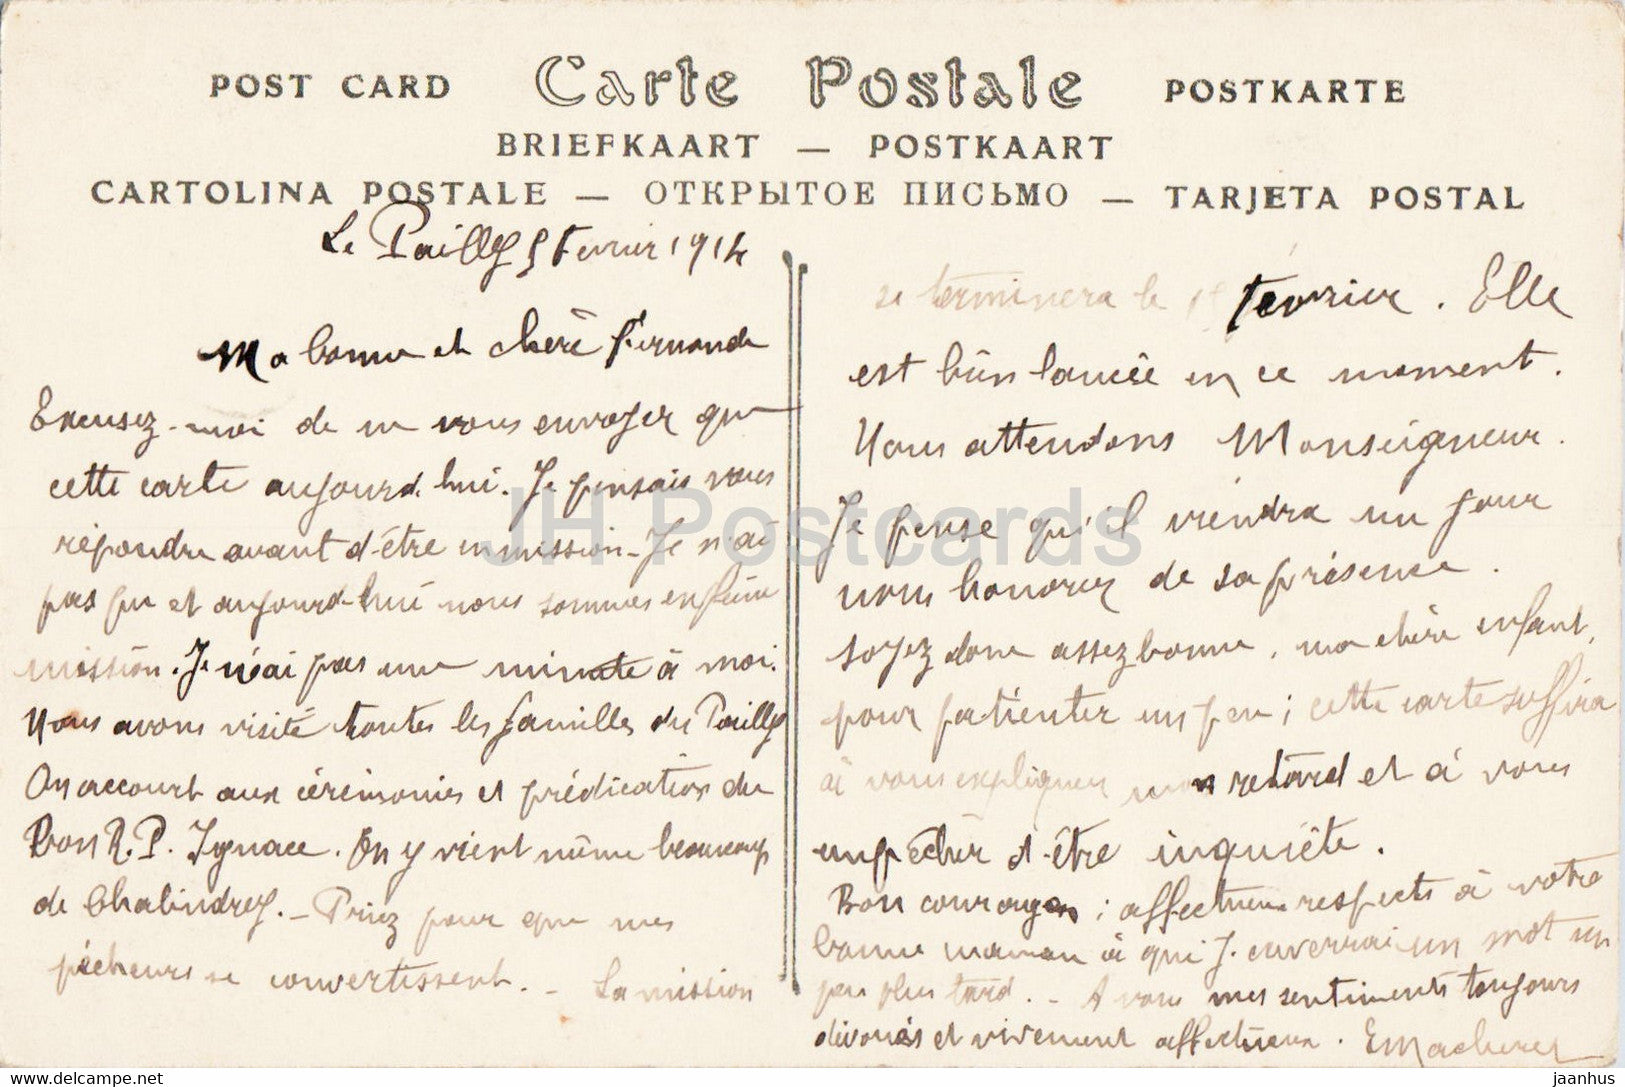 POST CARD Carte Postale POSTKARTE
BRIEFKAART — POSTKAART
CARTOLINA POSTALE — ОТКРЫТОЕ ПИСЬМО — TARJETA POSTAL
Le Pailly 5 Février 1914
Ma bonne et chère Fernande
Excusez-moi de ne vous envoyer que
cette carte aujourd'hui. Je pensais vous
répondre avant d'être en mission - Je n'ai
pas pu et aujourd'hui nous sommes en pleine
mission. Je n'ai pas une minute à moi.
Nous avons visité toutes les familles du Pailly
On accourt aux cérémonies et prédication du
bon R. P. Ignace. On y vient même beaucoup
de Chalindrey. - Priez pour que mes
pécheurs se convertissent. - La mission
se terminera le 15 février. Elle
est bien lancée en ce moment.
Nous attendons Monseigneur.
Je pense qu'il viendra un jour
nous honorer de sa présence.
Soyez donc assez bonne, ma chère enfant,
pour patienter un peu ; cette carte suffira
à vous expliquer mon retard et à vous
empêcher d'être inquiète.
Bon courage ; affectueux respects à votre
bonne maman à qui j'enverrai un mot un
peu plus tard. - A vous mes sentiments toujours
dévoués et vivement affectueux. E Macheret
JH Postcards
HIP POSTCARD.COM
jaanhus